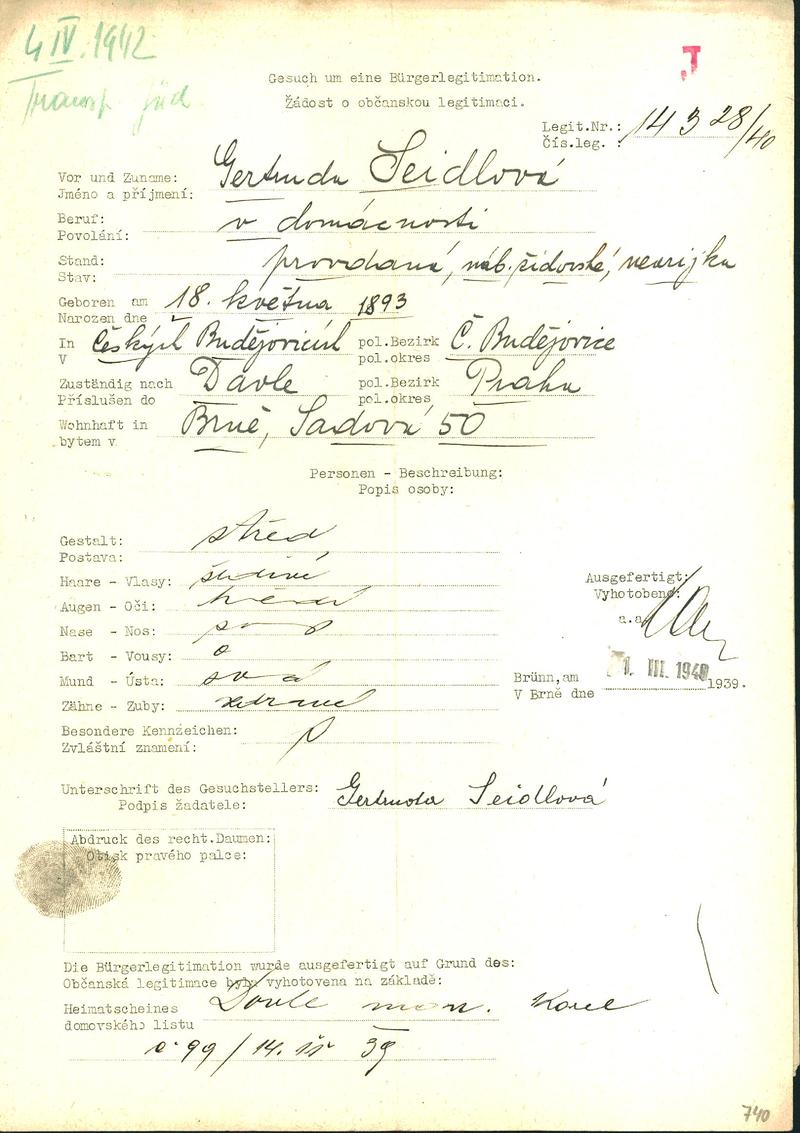 4 IV. 1942
Transp. Jüd
J
Gesuch um eine Bürgerlegitimation.
Žádost o občanskou legitimaci.
Legit.Nr.: 14 3 28/40
Čís.leg. :
Vor und Zuname: Gertruda Seidlová
Jméno a příjmení:
Beruf: v domácnosti
Povolání:
Stand: provdaná, náb. židovské, nearijka
Stav:
Geboren am 18. května 1893
Narozen dne
In Českých Budějovicích pol.Bezirk Č. Budějovice
V pol.okres
Zuständig nach Davle pol.Bezirk Praha
Příslušen do pol.okres
Wohnhaft in Brně, Sadová 50
bytem v
Personen - Beschreibung:
Popis osoby:
Gestalt: střed
Postava:
Haare - Vlasy: šedivé
Augen - Oči: hnědé
Nase - Nos:
Bart - Vousy: o
Mund - Ústa:
Zähne - Zuby: zdravé
Besondere Kennzeichen:
Zvláštní znamení:
Ausgefertigt:
Vyhotobeno:
a.a
Brünn,am 1. III. 1940 1939.
V Brně dne
Unterschrift des Gesuchstellers: Gertruda Seidlová
Podpis žadatele:
Abdruck des recht.Daumen:
Otisk pravého palce:
Die Bürgerlegitimation wurde ausgefertigt auf Grund des:
Občanská legitimace byla vyhotovena na základě:
Heimatscheines Davle man. Karel
domovského listu
č 99/14. 39
740